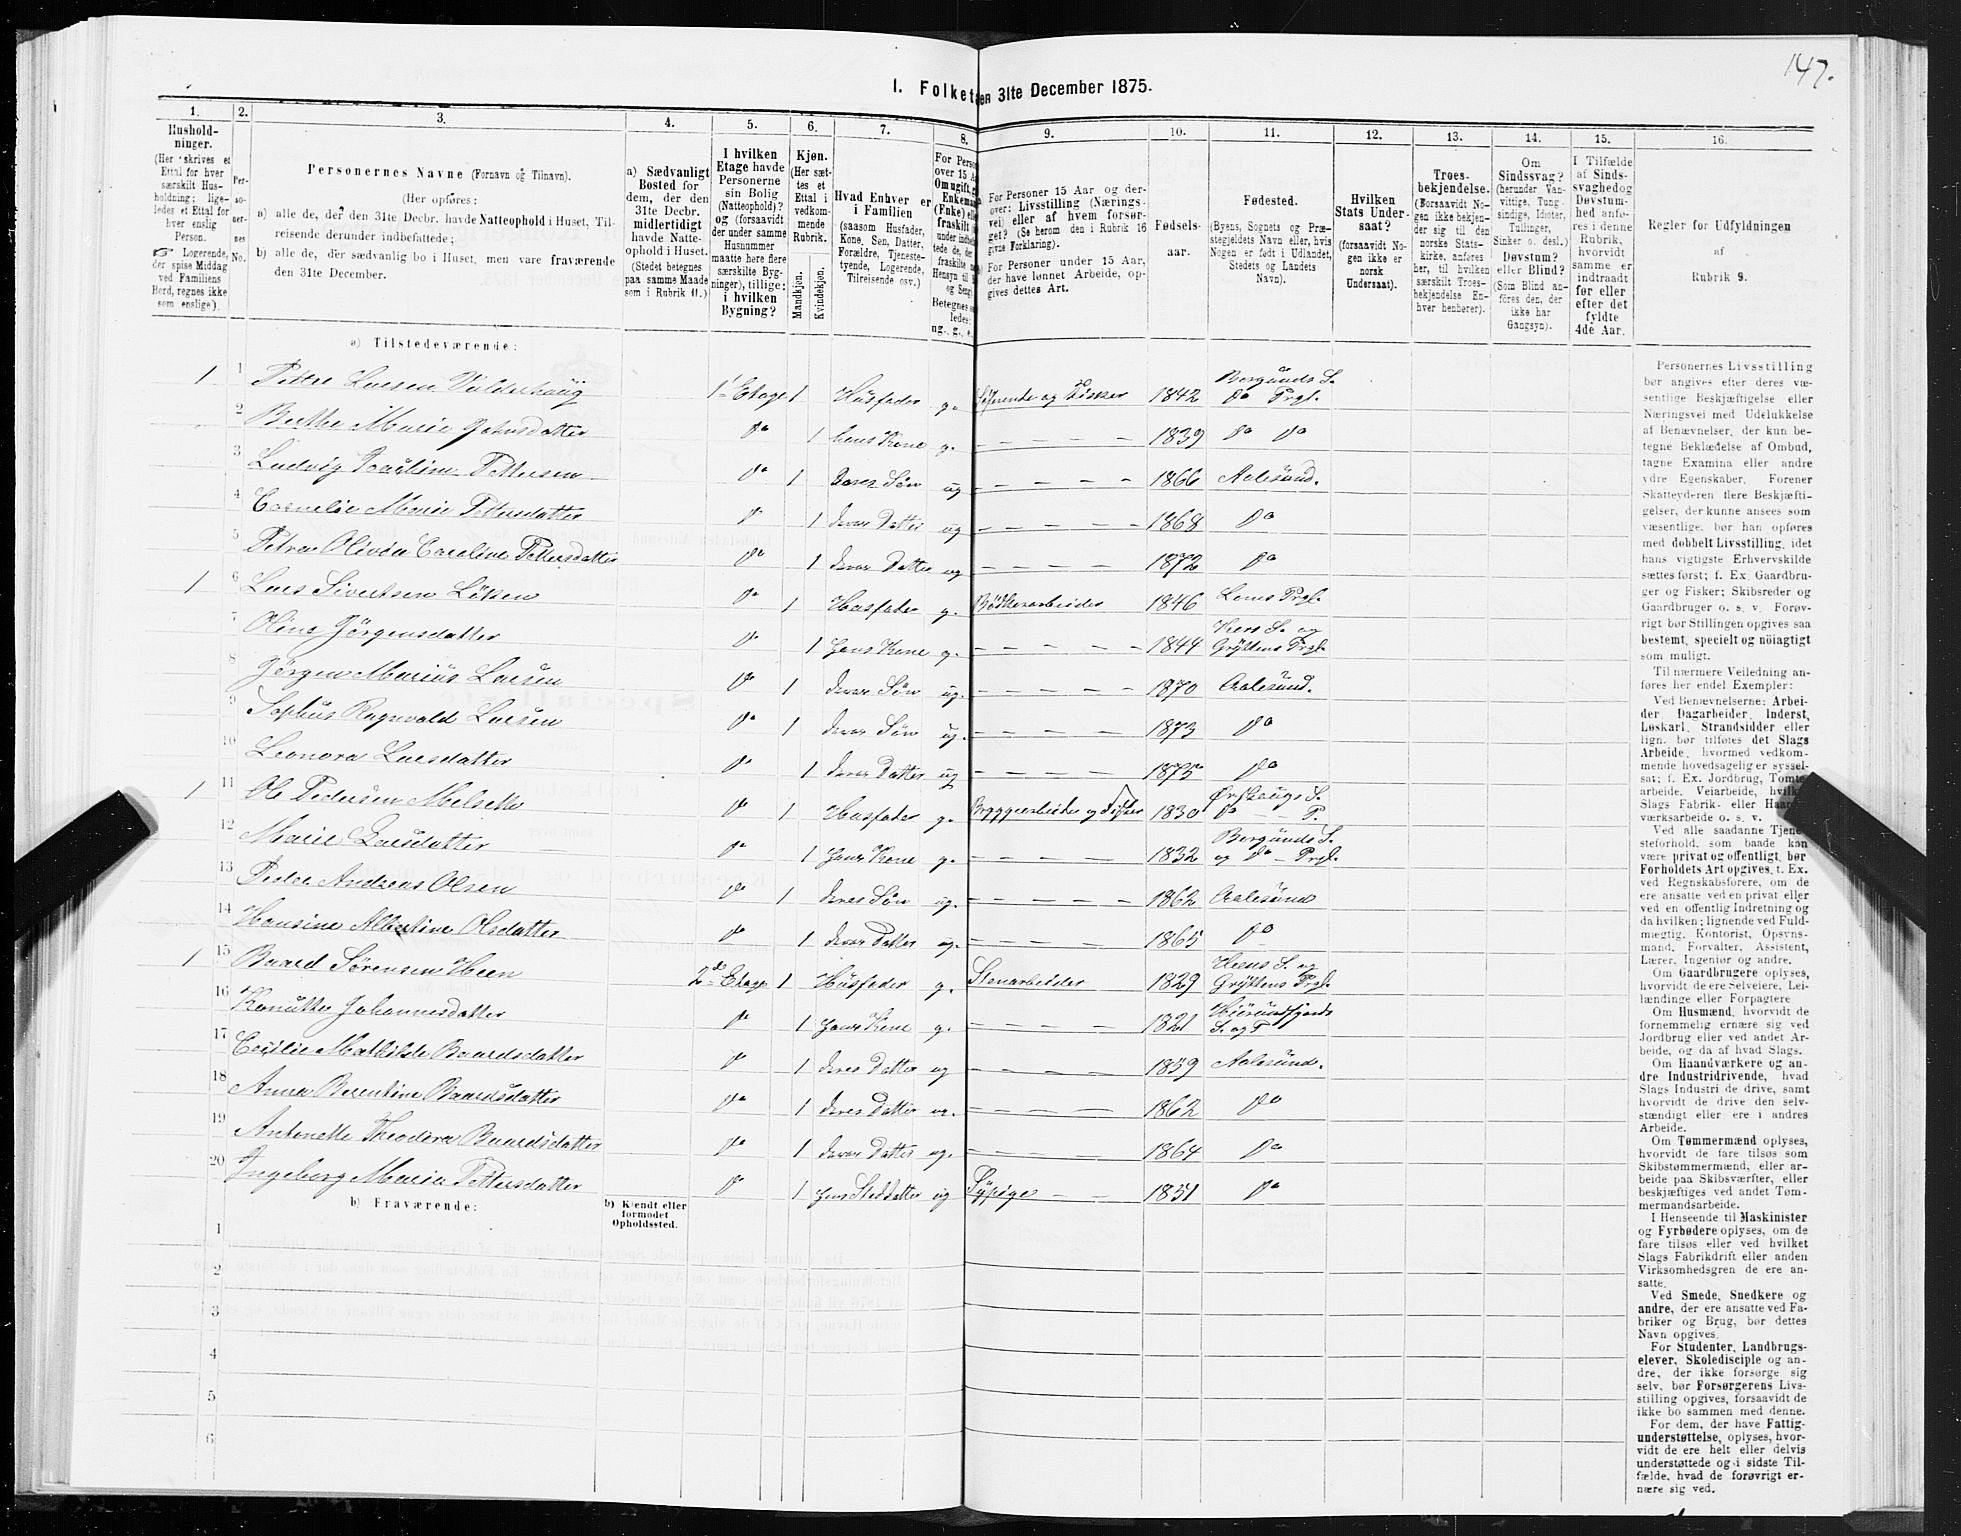 147.
I. Folketæ en 31te December 1875.
1.
2.
3.
4.
5.
6.
7.
8.
9.
10.
11.
12.
13.
14.
15.
16.
Hushold-
ninger.
(Her skrives et
Ettal for hver
særskilt Hus-
holdning; lige-
ledes et Ettal for
hver enslig
Person.
☞ Logerende,
der spise Middag
ved Familiens
Bord, regnes ikke
som enslige).
Per-
so-
ner-
nes
No.
Personernes Navne (Fornavn og Tilnavn).
(Her opføres:
a) alle de, der den 31te Decbr. havde Natteophold i Huset, Til-
reisende derunder indbefattede;
b) alle de, der sædvanlig bo i Huset, men vare fraværende
den 31te December.
a) Sædvanligt
Bosted for
dem, der den
31te Decbr.
midlertidigt
havde Natte-
ophold i Huset.
(Stedet betegnes
paa samme Maade
som i Rubrik 11.)
I hvilken
Etage havde
Personerne
sin Bolig
(Natteophold)?
og (forsaavidt
der under samme
Husnummer
maatte høre flere
særskilte Byg-
ninger), tillige:
i hvilken
Bygning?
Kjøn.
(Her sæt-
tes et
Ettal i
vedkom-
mende
Rubrik.
Mandkjøn.
Kvindekjøn.
Hvad Enhver er
i Familien
(saasom Husfader,
Kone, Søn, Datter,
Forældre, Tjeneste-
tyende, Logerende,
Tilreisende osv.)
For Perso
over 15 A
Om ugift, g
Enkema
(Enke) elle
fraskilt
under indbe
tede de, der
fraskilte
Hensyn til
og Seng
Betegnes s
ledes:
ug., g., e.
For Personer 15 Aar og der-
over: Livsstilling (Nærings-
vei) eller af hvem forsør-
get? (Se herom den i Rubrik 16
givne Forklaring).
For Personer under 15 Aar,
der have lønnet Arbeide, op-
gives dettes Art.
Fødsels-
aar.
Fødested.
(Byens, Sognets og Præ-
stegjeldets Navn eller, hvis
Nogen er født i Udlandet,
Stedets og Landets
Navn).
Hvilken
Stats Under-
saat?
(forsaavidt No-
gen ikke er
norsk
Undersaat).
Troes-
bekjendelse.
(Forsaavidt No-
gen ikke bekjen-
der sig til den
norske Stats-
kirke, anføres
her, til hvilken
særskilt Troes-
bekjendelse En-
hver henhører).
Om
Sindssvag?
(herunder Van-
vittige, Tung-
sindige, Idioter,
Tullinger,
Sinker o. desl.)
Døvstum?
eller Blind?
(Som Blind an-
føres den, der
ikke har
Gangsyn).
I Tilfælde
af Sinds-
svaghed og
Døvstum-
hed anfø-
res i denne
Rubrik,
hvorvidt
samme er
indtraadt
før eller
efter det
fyldte
4de Aar.
Regler for Udfyldningen
af
Rubrik 9.
a) Tilstedeværende:
1 1 Petter Larsen Valderhoug 1ste Etage 1 Husfader g. Sjømend og Fisker 1842 Borgunds S. do Prgl.
2 Berthe Marie Jahnsdatter do 1 hans Kone g. 1839 do do
3 Ludvig Paulin Pettersen do 1 deres Søn ug 1866 Aalesund.
4 Cornelie Marie Pettersdatter do 1 deres Datter ug 1868 do
5 Petra Olivia Caroline Pettersdatter do 1 deres Datter ug 1872 do
1 6 Lars Sivertsen Løken do 1 Husfader g. Bødkerarbeider 1846 Loms Prgl.
7 Oline Jørgensdatter do 1 hans Kone g. 1844 Hens S. og Gryttens Prgl.
8 Jørgen Marius Larsen do 1 deres Søn ug. 1870 Aalesund.
9 Sophus Ragnvald Larsen do 1 deres Søn ug. 1873 do
10 Leonora Larsdatter do 1 deres Datter ug 1875 do
1 11 Ole Pedersen Melseth do 1 Husfader g. Bryggearbeider og Fisker 1830 Ørskougs S. do P.
12 Marie Larsdatter do 1 hans Kone g. 1832 Borgunds S. og do Prgl.
13 Peder Andreas Olsen do 1 deres Søn ug. 1862 Aalesund
14 Hansine Albertine Olsdatter do 1 deres Datter ug. 1865 do
1 15 Baard Sørensen Heen 2den Etage 1 Husfader g. Stenarbeider 1829 Heens S. og Gryttens Prgl.
16 Kanutte Johannesdatter do 1 hans Kone g. 1821 Hiørundfjords S. og P
17 Cecilie Mathilde Baardsdatter do 1 deres Datter ug 1859 Aalesund.
18 Anna Berentine Baardsdatter do 1 deres Datter ug. 1862 do
19 Antonette Theodora Baardsdatter do 1 deres Datter ug. 1864 do
20 Ingeborg Maria Pettersdatter do 1 hans Steddatter ug Sypige 1851 do
b) Fraværende:
b) Kjendt eller
formodet
Opholdssted.
1
2
3
4
5
6
Personernes Livsstilling
bør angives efter deres væ-
sentlige Beskjæftigelse eller
Næringsvei med Udelukkelse
af Benævnelser, der kun be-
tegne Beklædelse af Ombud,
tagne Examina eller andre
ydre Egenskaber. Forener
Skatteyderen flere Beskjæfti-
gelser, der kunne ansees som
væsentlige, bør han opføres
med dobbelt Livsstilling, idet
hans vigtigste Erhvervskilde
sættes først; f. Ex. Gaardbru-
ger og Fisker; Skibsreder og
Gaardbruger o. s. v. Forøv-
rigt bør Stillingen opgives saa
bestemt, specielt og nøiagtigt
som muligt.
Til nærmere Veiledning an-
føres her endel Exempler:
Ved Benævnelserne: Arbei-
der, Dagarbeider, Inderst,
Løskarl, Strandsidder eller
lign. bør tilføies det Slags
Arbeide, hvormed vedkom-
mende hovedsagelig er syssel-
sat; f. Ex. Jordbrug, Tomte-
arbeide, Veiarbeide, hvilket
Slags Fabrik- eller Haand-
værksarbeide o. s. v.
Ved alle saadanne Tjene-
steforhold, som baade kan
være privat og offentligt, bør
Forholdets Art opgives, t. Ex.
ved Regnskabsførere, om de
ere ansatte ved en privat eller
ved en offentlig Indretning og
da hvilken; lignende ved Fuld-
mægtig, Kontorist, Opsyns-
mand, Forvalter, Assistent,
Lærer, Ingeniør og andre.
Om Gaardbrugere oplyses,
hvorvidt de ere Selveiere, Lei-
lændinge eller Forpagtere.
Om Husmænd, hvorvidt de
fornemmelig ernære sig ved
Jordbrug eller ved andet Ar-
beide, og da af hvad Slags.
Om Haandværkere og an-
dre Industridrivende, hvad
Slags Industri de drive, samt
hvorvidt de drive den selv-
stændigt eller ere i andres
Arbeide.
Om Tømmermænd oplyses,
hvorvidt de fare tilsøs som
Skibstømmermænd, eller ar-
beide paa Skibsværfter, eller
beskjæftiges ved andet Tøm-
mermandsarbeide.
I Henseende til Maskinister
og Fyrbødere oplyses, om de
fare tilsøs eller ved hvilket
Slags Fabrikdrift eller anden
Virksomhedsgren de ere an-
satte.
Ved Smede, Snedkere og
andre, der ere ansatte ved Fa-
briker og Brug, bør dettes
Navn opgives.
For Studenter, Landbrugs-
elever, Skoledisciple og an-
dre, der ikke forsørge sig
selv, bør Forsørgerens Livs-
stilling opgives, forsaavidt de
ikke bo sammen med denne.
For dem, der have Fattig-
understøttelse, oplyses, hvor-
vidt de ere helt eller delvis
understøttede og i sidste Til-
fælde, hvad de forøvrigt er-
nære sig ved.